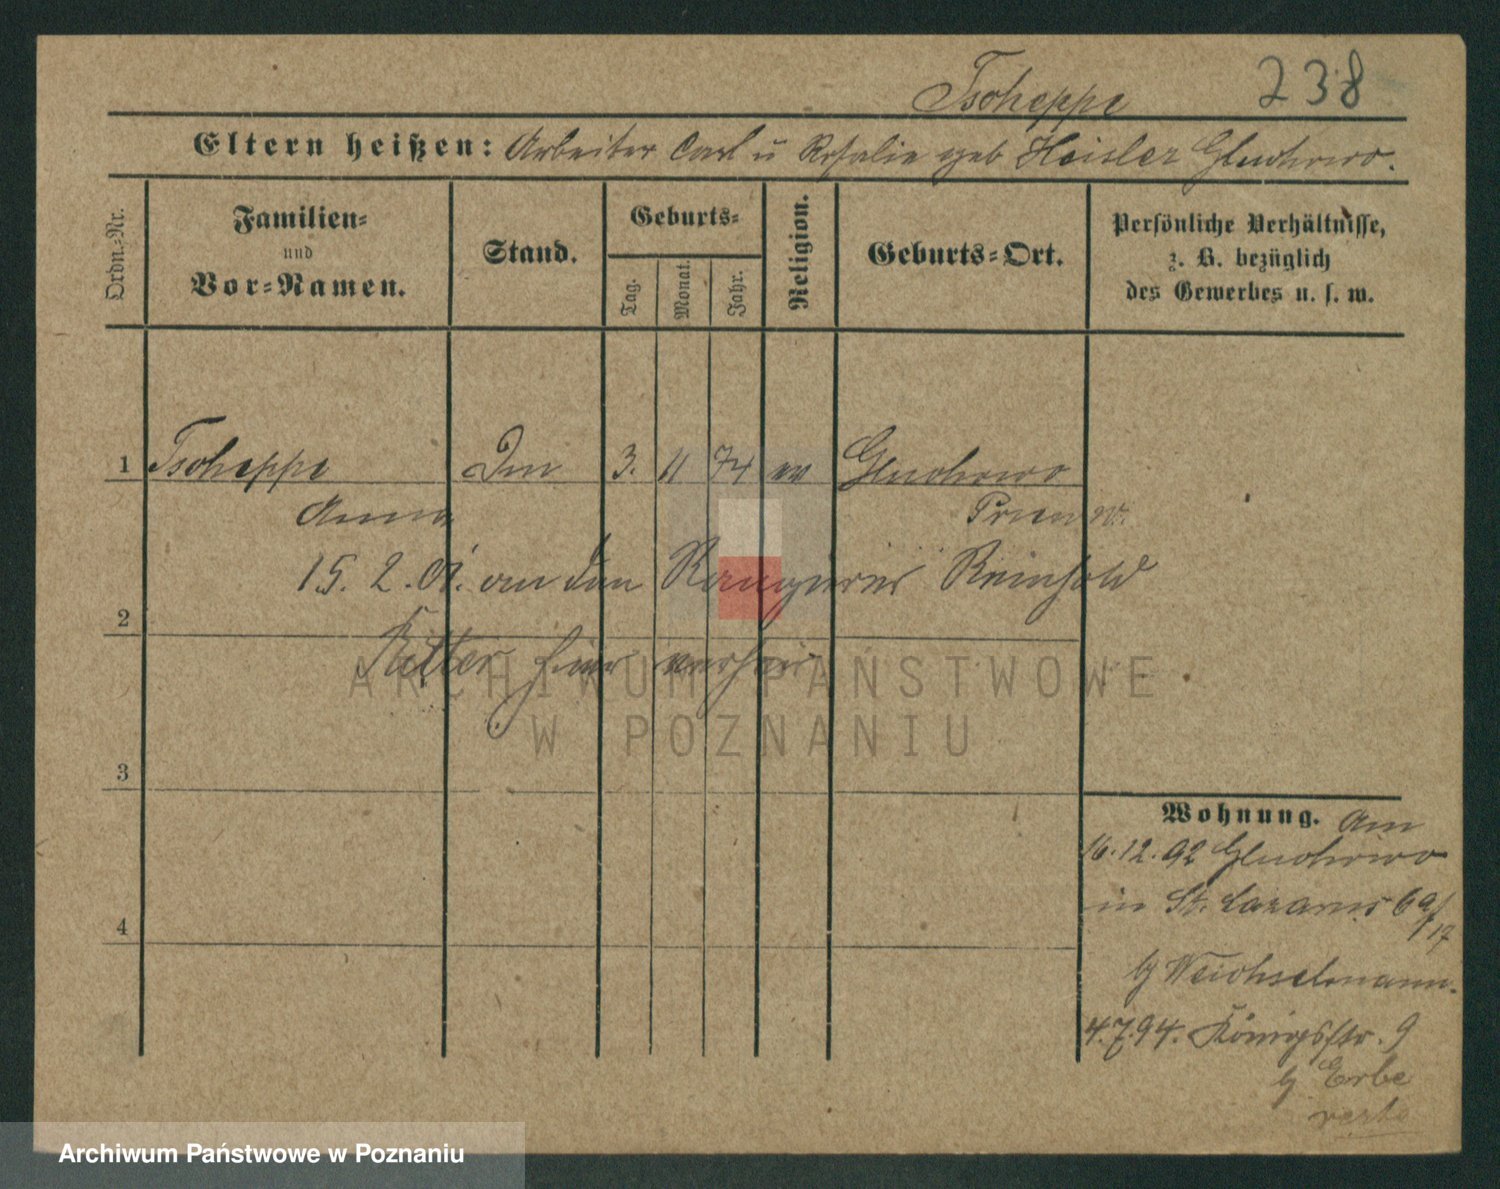 Tscheppe 238
Eltern heißen: Arbeiter Carl u Rosalie geb Heisler Gluchowo.
Ordn.-Nr.
Familien-
und
Vor-Namen.
Stand.
Geburts-
Tag.
Monat.
Jahr.
Religion.
Geburts-Ort.
Persönliche Verhältnisse,
z. B. bezüglich
des Gewerbes u. s. w.
1 Tscheppe 3. 11 74 ev Gluchowo
Anna
15. 2. 01. an den Rangierer Reinhold
2
Ritter hier verheir
3
Wohnung. Am
16.12.92 Gluchowo
in St. Lazarus 69/17
4
b/ Weichselmann.
4.7.94. Königsstr. 9
b/ Erbe
verte
ARCHIWUM PAŃSTWOWE
W POZNANIU
Archiwum Państwowe w Poznaniu